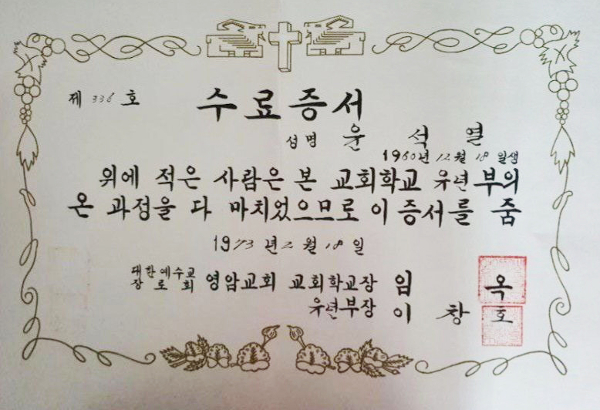 제 336 호
수료증서
성명 윤 석 열
1960년 12월 18일생
위에 적은 사람은 본 교회학교 유년부의
온 과정을 다 마치었으므로 이 증서를 줌
1973년 2월 18일
대한예수교
장로회 영암교회 교회학교장 임 옥
유년부장 이 창 호